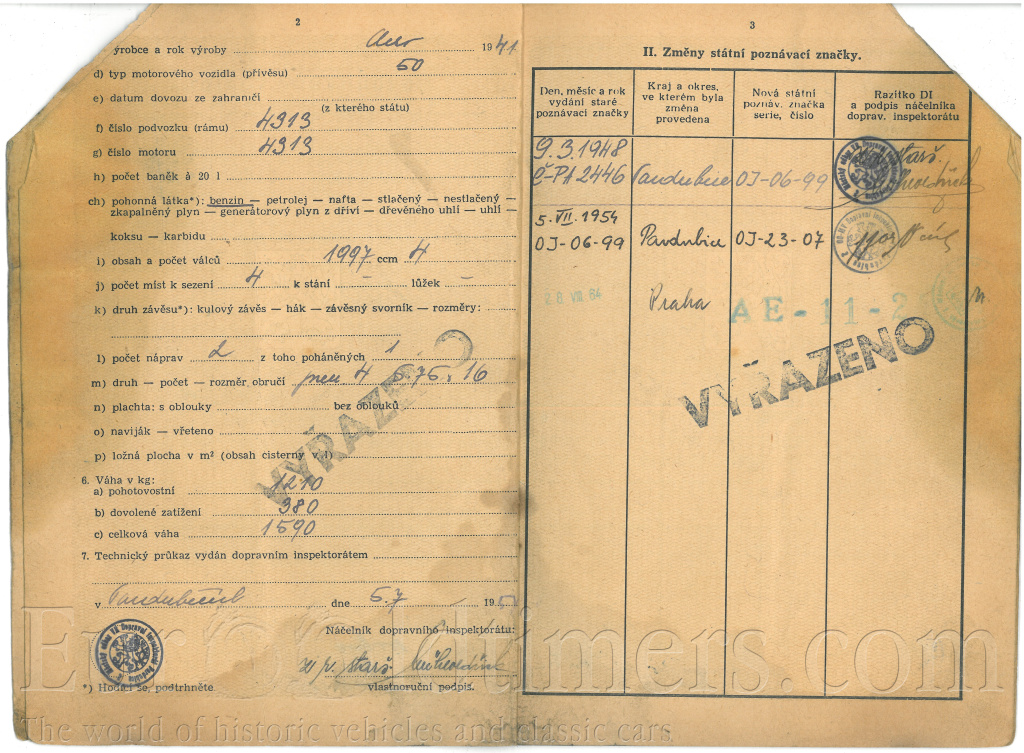 2
ýrobce a rok výroby Aero 1941
d) typ motorového vozidla (přívěsu) 50
e) datum dovozu ze zahraničí
(z kterého státu)
f) číslo podvozku (rámu) 4313
g) číslo motoru 4313
h) počet baněk à 20 l
ch) pohonná látka*): benzin — petrolej — nafta — stlačený — nestlačený —
zkapalněný plyn — generátorový plyn z dříví — dřevěného uhlí — uhlí —
koksu — karbidu
i) obsah a počet válců 1997 ccm 4
j) počet míst k sezení 4 k stání – lůžek –
k) druh závěsu*): kulový závěs — hák — závěsný svorník — rozměry:
l) počet náprav 2 z toho poháněných 1
m) druh — počet — rozměr obručí pneu 4 5.75.16
n) plachta: s oblouky bez oblouků
o) naviják — vřeteno
p) ložná plocha v m² (obsah cisterny v l)
VYŘAZENO
6. Váha v kg:
a) pohotovostní 1210
b) dovolené zatížení 380
c) celková váha 1590
7. Technický průkaz vydán dopravním inspektorátem
v Pardubicích dne 5.7 195
Náčelník dopravního inspektorátu:
starš.
*) Hodící se, podtrhněte
vlastnoruční podpis.
3
II. Změny státní poznávací značky.
Den, měsíc a rok vydání staré poznávací značky
Kraj a okres, ve kterém byla změna provedena
Nová státní poznáv. značka serie, číslo
Razítko DI a podpis náčelníka doprav. inspektorátu
9.3.1948
Č-PA 2446 Pardubice OJ-06-99 starš.
5. VII. 1954
OJ-06-99 Pardubice OJ-23-07
28 VII. 64 Praha AE-11-2
VYŘAZENO
EuroOldtimers.com
The world of historic vehicles and classic cars